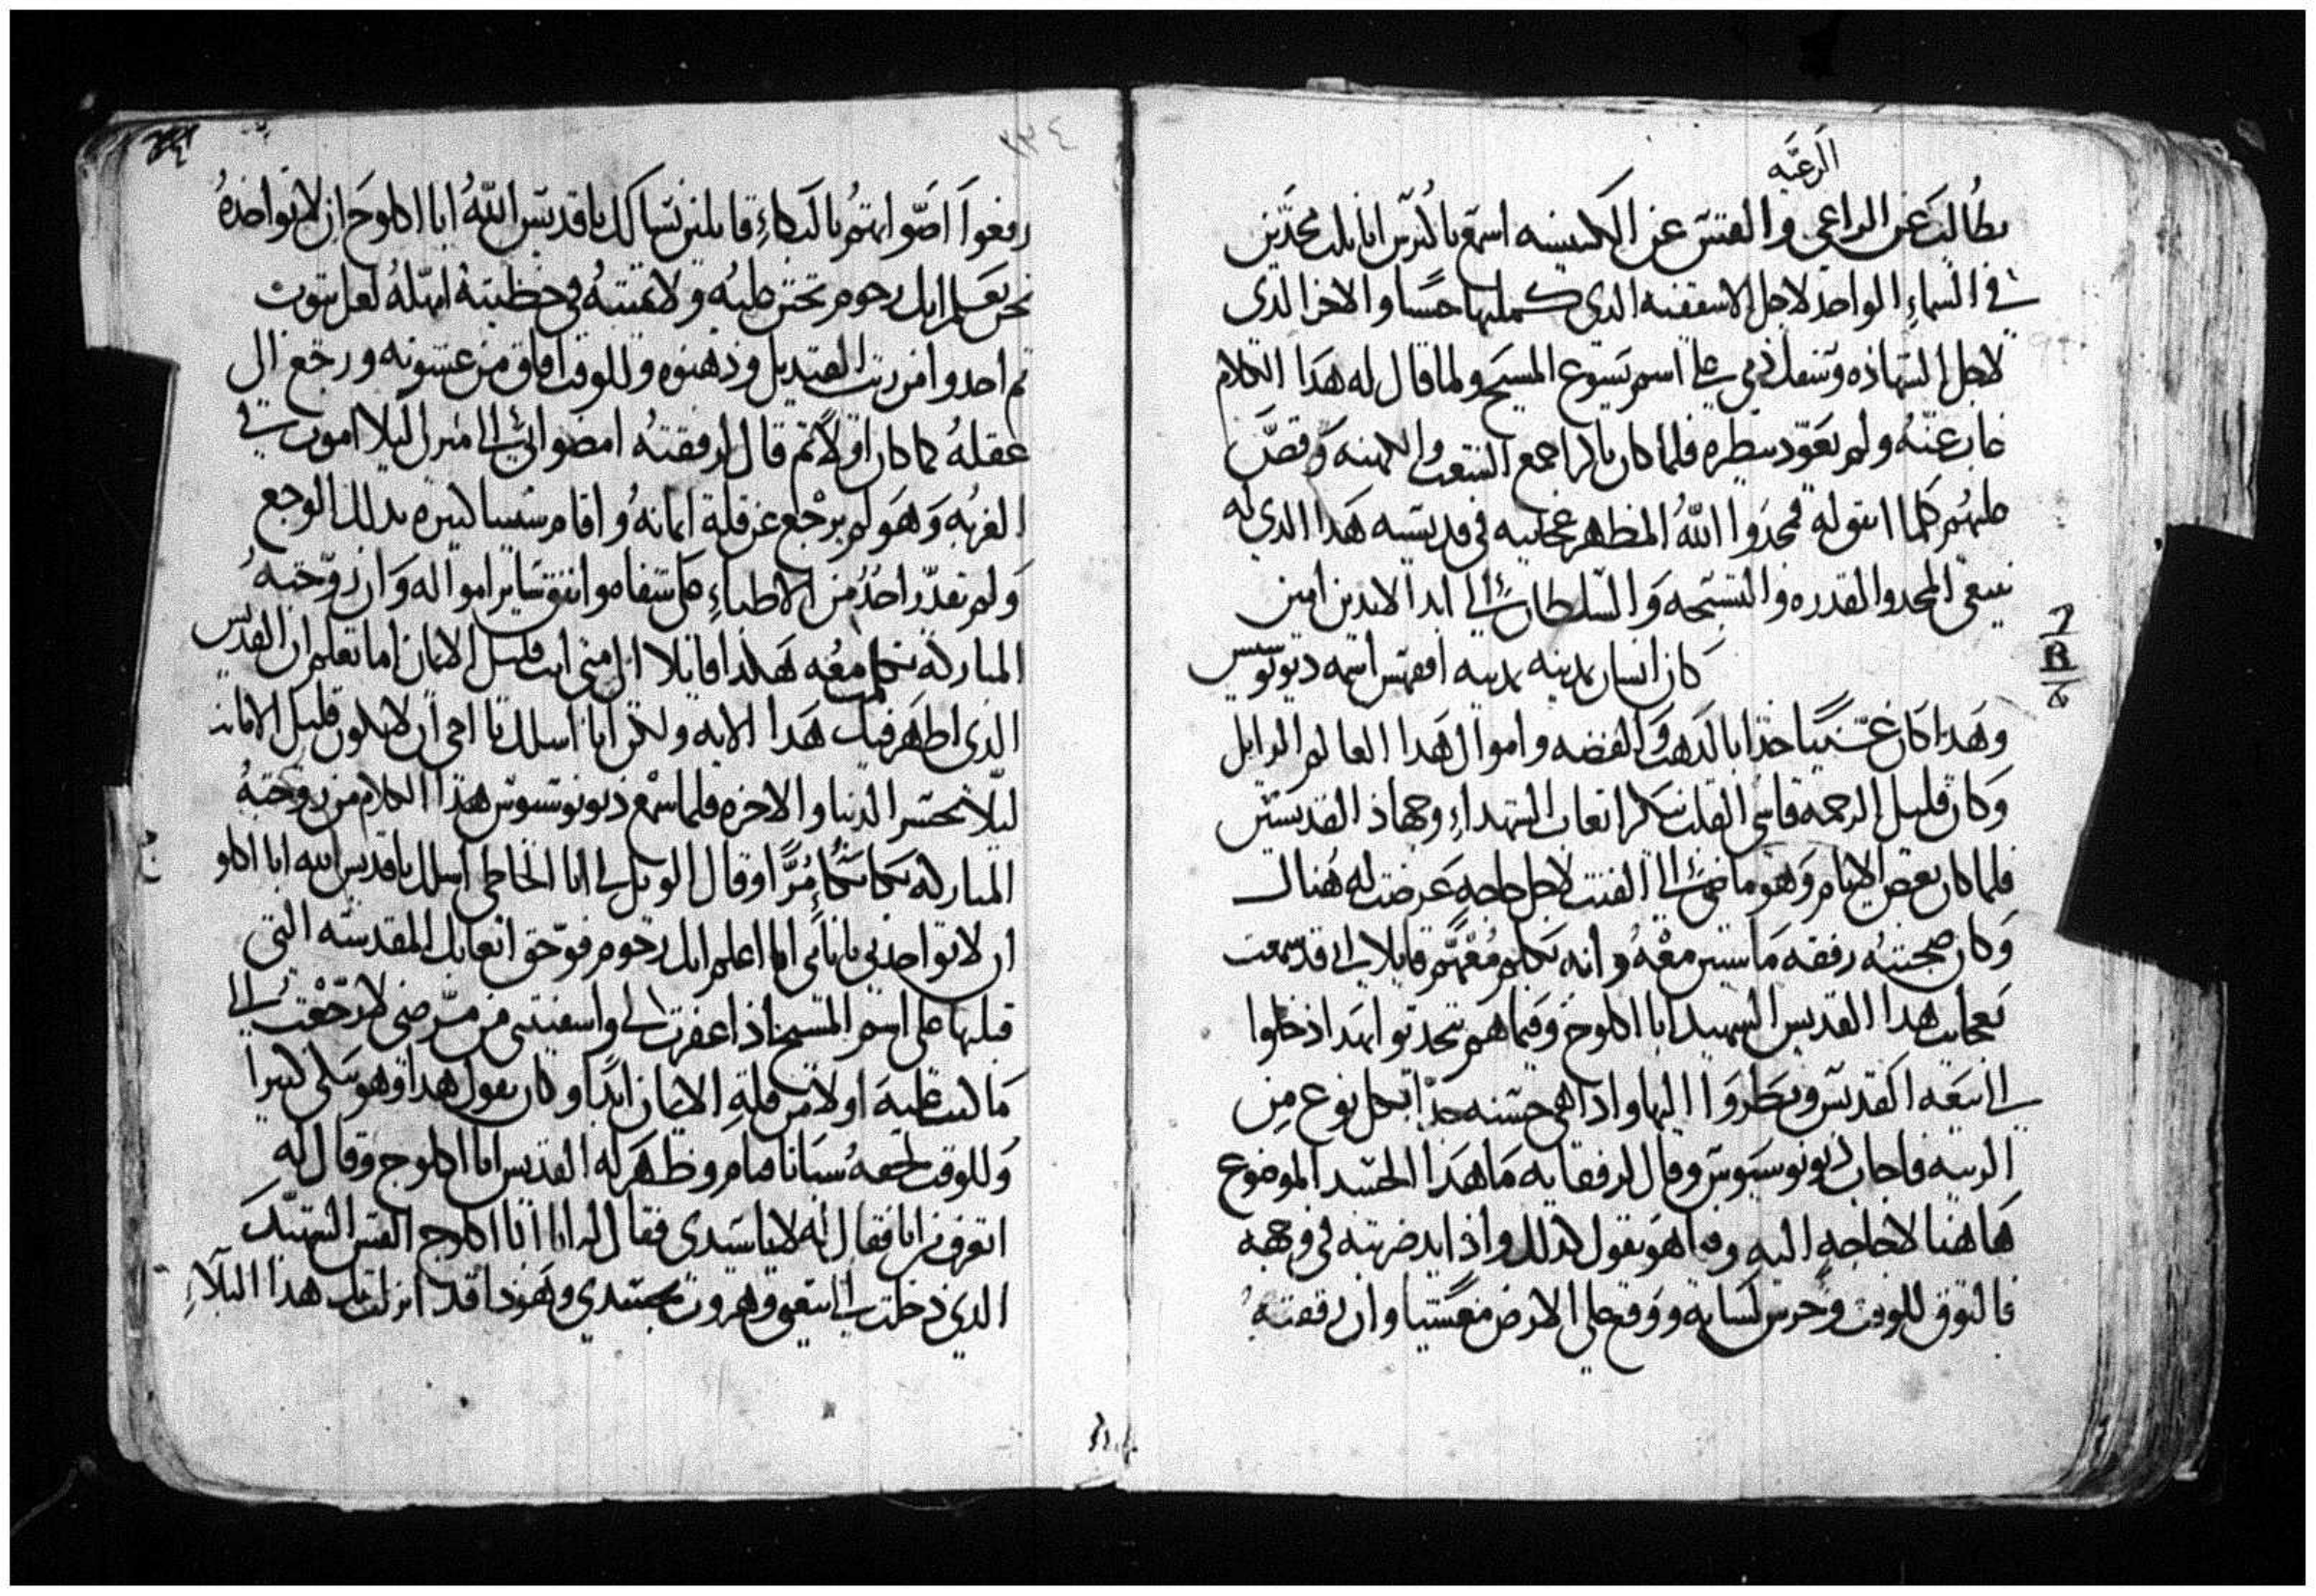 الرعيه
يطالب عن الراعي والقس عن الكنيسه اسمع يا انا بلت مجدين
في السماءِ الواحد لاجل الاسقفيه الدي كملتها حسًنا والاخر الدى
لاجل الشهاده وسفك دمي على اسم يسوع المسيح ولما قال له هَدَا الكلام
غاب عنهُ ولم يعود ينظره فلما كان باكر اجمع الشعب والكهنه وقصَّ
عليهم كلما اتفق له فمجدَوا اللهُ المظهر عجايبه في قديسيه هَدَا الدي له
ينبغي المجد والقدره والتسبحه وَالسلطان الى ابد الابدين امين
كان انسان بمدينه بمدينه اسمه ديونوسيس
وهدا كان غنيًا جدا بالدهب وَالفضه واموال هَدا العالم الزايل
وَكان قليل الرحمه قاسى القلب ينكر اتعاب الشهداءِ وجهاد القديسين
فلما كان بعض الايام وَهو ماضي الى لاجل حاجهٍ عرضت له هُناك
وَكان صحبتهُ رفقه مَاشيين معهُ وانه تكلم معَهُم قايلا اني قد سمعت
بعجايب هدا القديس الشهيد ابا اكلوج وفيما هم يتحدثوا بهدا دخلوا
الى بيعه القديس ونظَروا اليها وادا هي حسنه جدًا بكل نوع من
الزينه فاجاب ديونوسيوس وقال لرفقايه مَا هَدَا الجسد الموضوع
هَاهنا لا حاجه اليه وفيما هو يقول كدلك وادا يد ضربته في وجهه
فالتوق للوقت وخرس لسانه ووقع على الارض مغشيا وان رفقتهُ
٢٣٤
رفعوا اصَواتهُم بالبكاءِ قايلين نسالك يا قديس اللهُ ابا اكلوج ان لا تواخذهُ
نحن نعلم انك رحوم تحنن عليه ولا تميتهُ في خطيتهُ امهلهُ لعل يتوب
ثم اخدوا من زيت القنديل ودهنوه وللوقت افاق من غشوته ورجع الى
عقلهُ كما كان اولاً ثم قال لرفقتهُ امضوا بي الى منزلي ليلا اموت في
الغربه وَهَو لم يرجع عن قلة امانهُ واقام سنينا كبيره بدلك الوجع
وَلم يقدر احدُ من الاطباءِ على شفاه وانفق ساير امواله وَان زوجتهُ
المباركه تكلم معُه هَكدا قايلا الى متى انت قليل الايمان اما تعلم ان القديس
الدي اظهر فيك هَدا الايه ولكن انا اسلك يا اخي ان لا تكون قليل الامانه
ليلا تخسر الدنيا والاخره فلما سمع ديونوسيوس هدا الكلام من زوجتهُ
المباركه بكا بكاءً مُرًا وقال الويل لي انا الخاطي اسلك يا قديس الله ابا اكلو
ان لا تواخدني بما انا اعلم انك رحوم فوحق اتعابك المقدسه التي
قبلتها على اسم المسيح اذا غفرت لي واشفيتني من مرضي لا رَجعت الى
مَا كنت عليه اولا من قلة الايمان ابدًا وكان يقول هدا وهو يبكي كثيرا
وَللوقت لحقهُ سباتا فنام وظهَر له القديس ابا اكلوج وقال له
اتعرف من انا فقال له لا يا سيدي فقال له انا ابا اكلوج القس الشهيد
الدي دخلت الى بيعتي وهزوت بجسدي وهَودا قد انزلت بك هدا البلاءِ